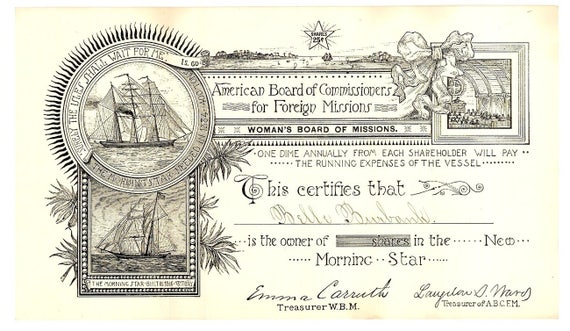 SHARES
25¢
"SURELY THE ISLES SHALL WAIT FOR ME"
Is. 60
American Board of Commissioners
for Foreign Missions
WOMAN'S BOARD OF MISSIONS.
ONE DIME ANNUALLY FROM EACH SHAREHOLDER WILL PAY
THE RUNNING EXPENSES OF THE VESSEL
This certifies that
Belle Burbank
is the owner of shares in the New
Morning Star
THE MORNING STAR BUILT
Emma Carruth
Treasurer W.B.M.
Langdon S. Ward
Treasurer of A.B.C.F.M.